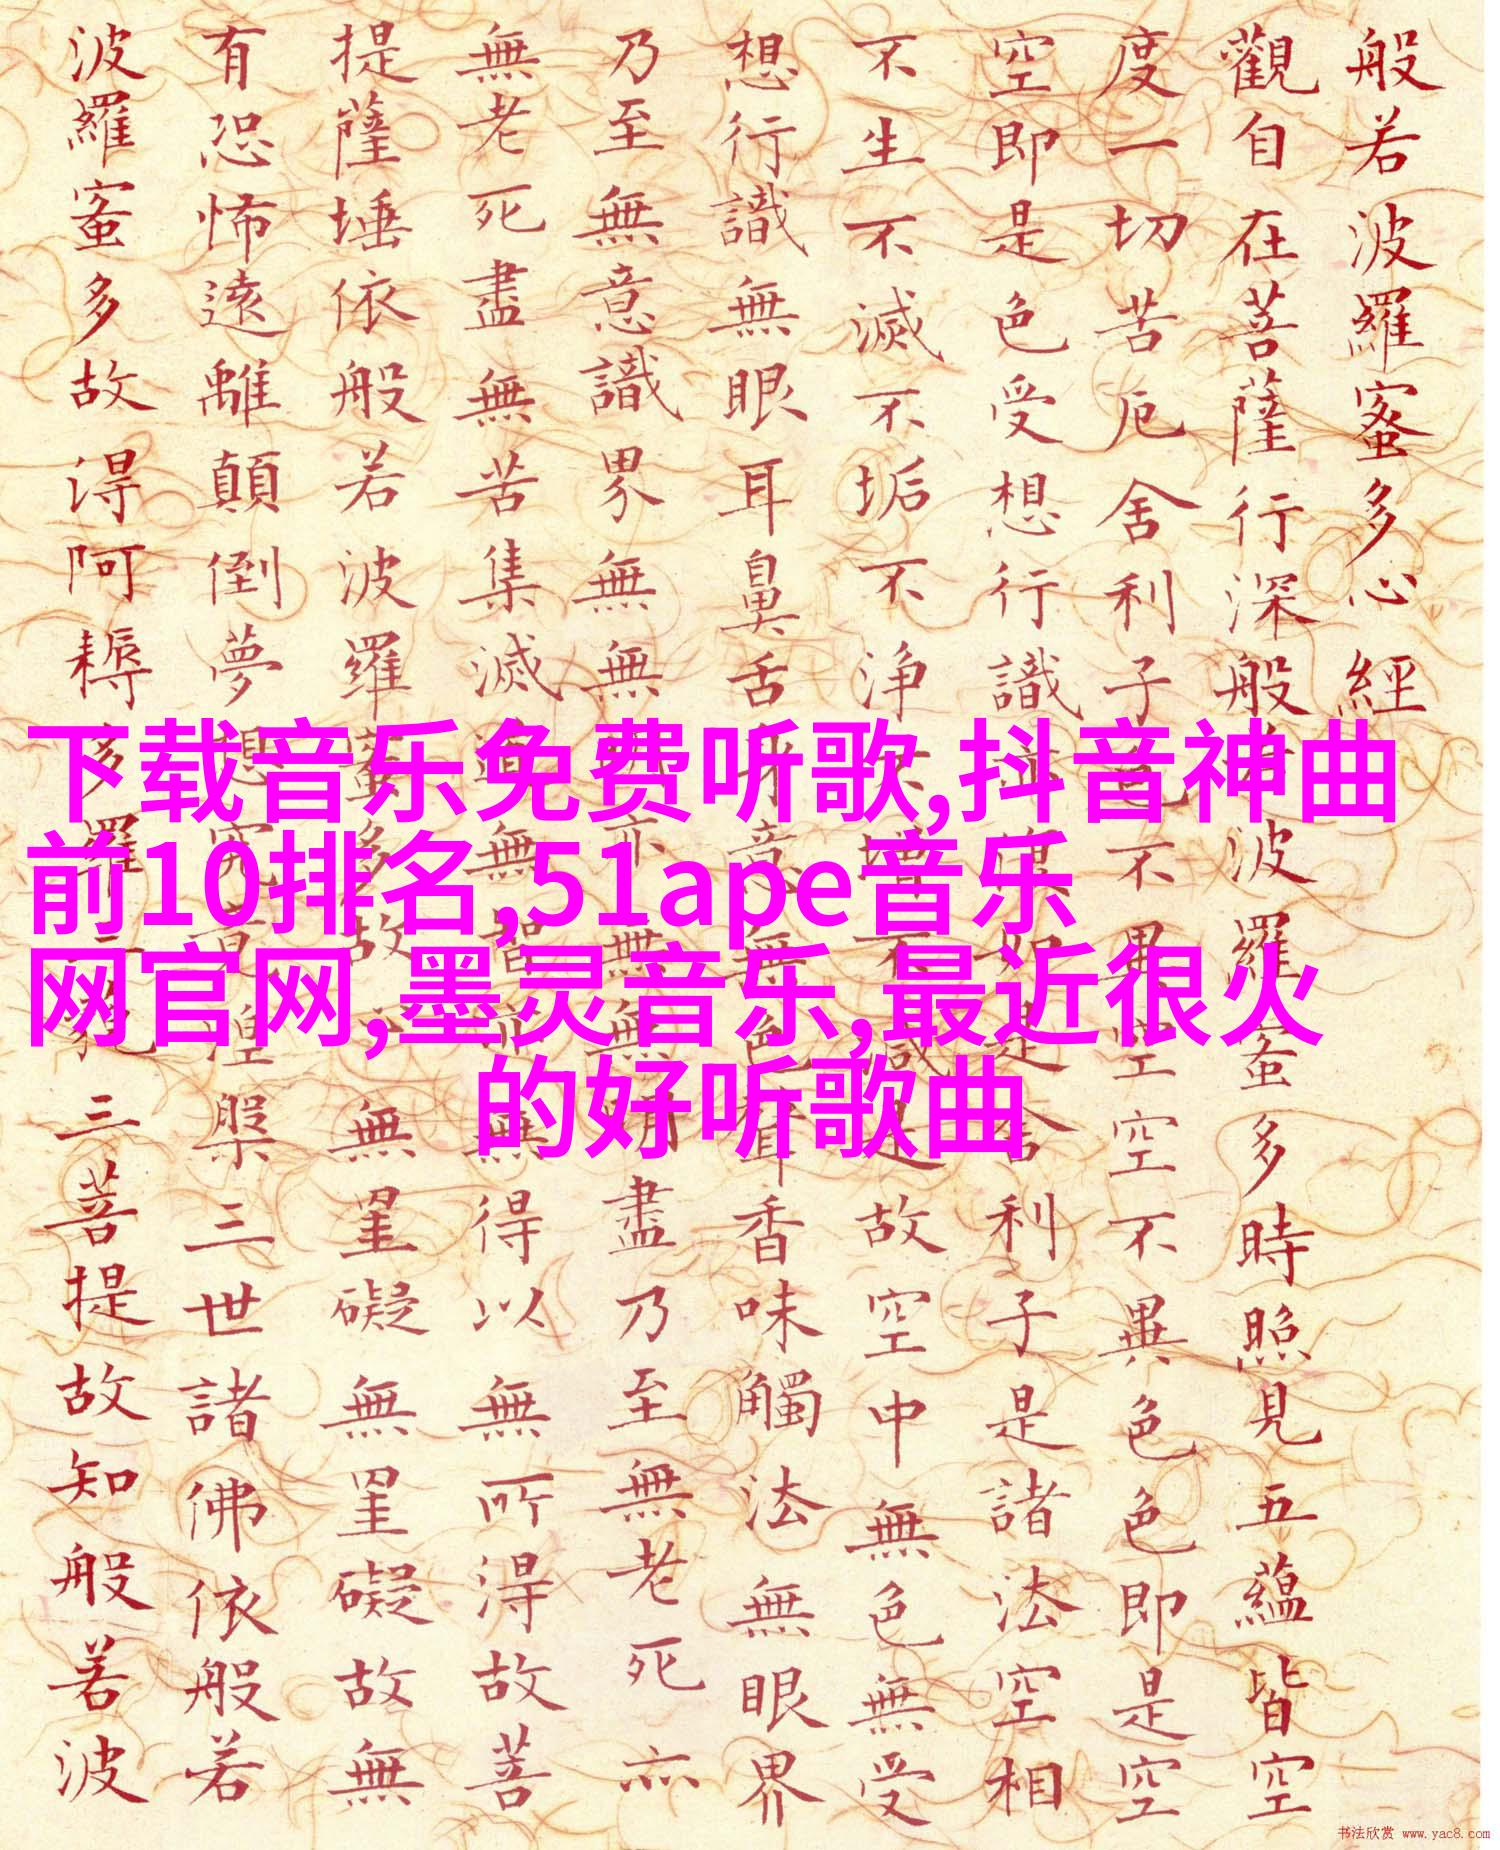 般若波羅蜜多心經
觀自在菩薩行深般若波羅蜜多時照見五蘊皆空
度一切苦厄舍利子色不異空空不異色色即是空
空即是色受想行識亦復如是舍利子是諸法空相
不生不滅不垢不净不增不減是故空中無色無受
想行識無眼耳鼻舌身意無色聲香味觸法無眼界
乃至無意識界無無明亦無無明盡乃至無老死亦
無老死盡無苦集滅道無智亦無得以無所得故菩
提薩埵依般若波羅蜜多故心無罣礙無罣礙故無
有恐怖遠離顛倒夢想究竟涅槃三世諸佛依般若
波羅蜜多故得阿耨多羅三藐三菩提故知般若波
下载音乐免费听歌,抖音神曲
前10排名,51ape音乐
网官网,墨灵音乐,最近很火
的好听歌曲
书法欣赏 www.yac8.com